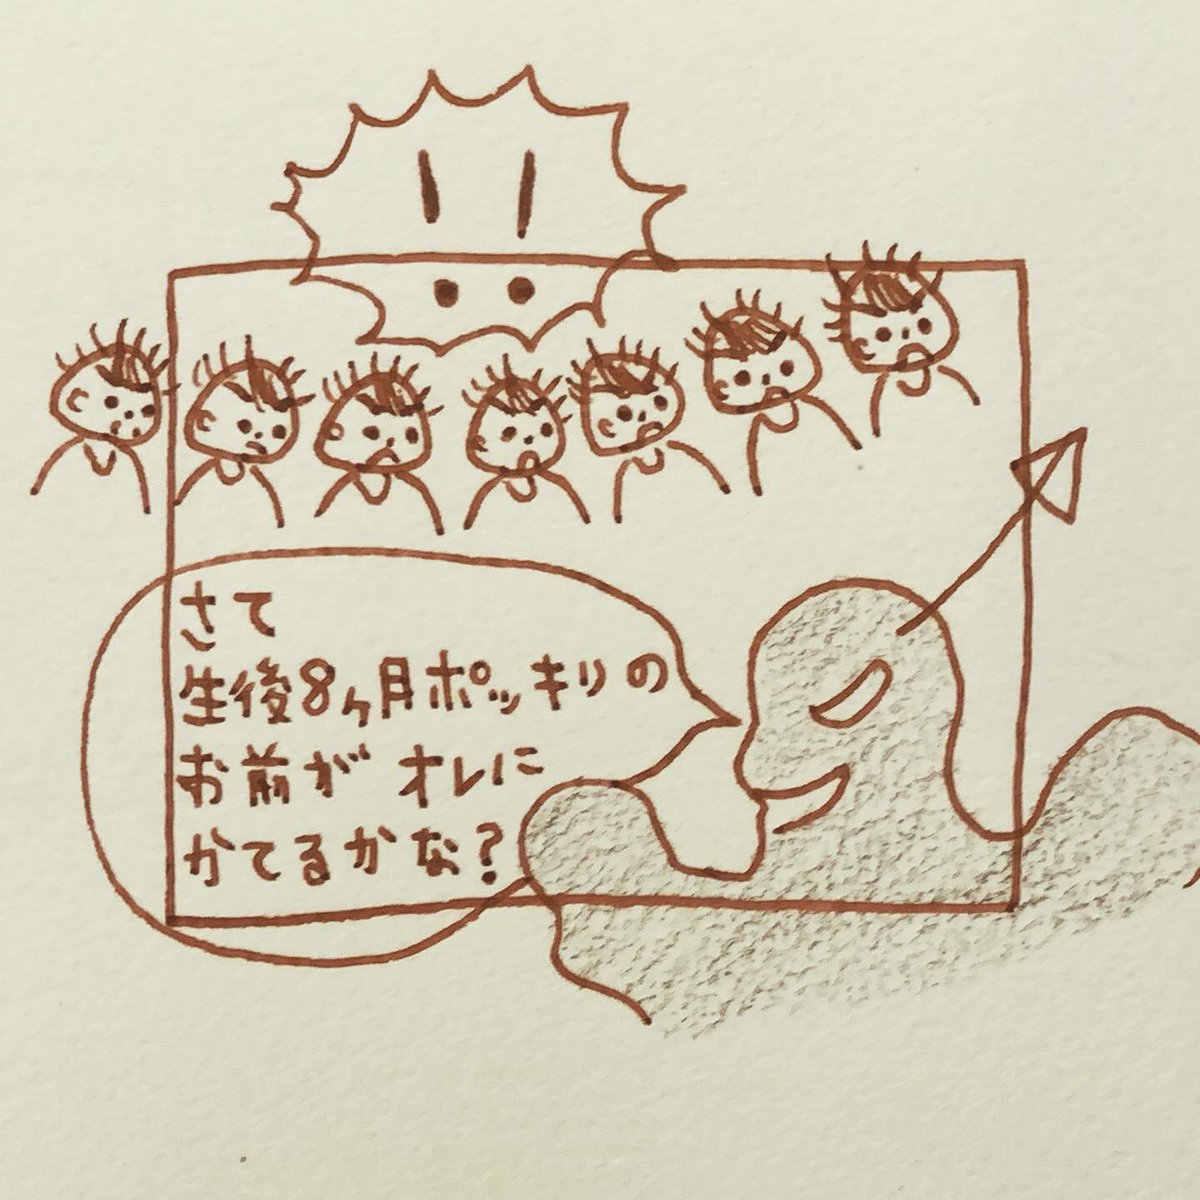 !!
さて
生後8ヶ月ポッキリの
お前が オレに
かてるかな?